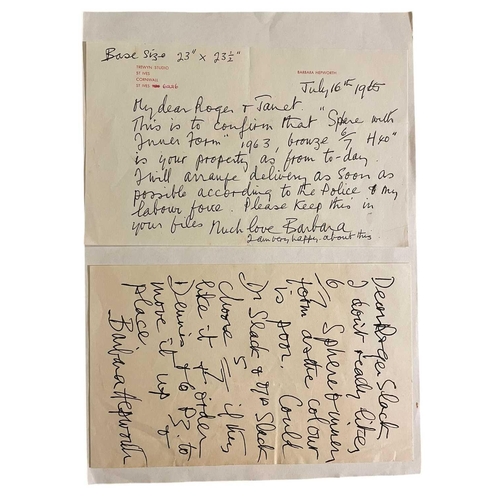 Base size 23" x 23½"
TREWYN STUDIO
ST IVES
CORNWALL
ST IVES
BARBARA HEPWORTH
July 16th 1965
My dear Roger & Janet.
This is to confirm that "Sphere with
Inner Form" 1963, bronze 6/7 H40"
is your property as from to-day.
I will arrange delivery as soon as
possible according to the Police & my
labour force. Please keep this in
your files Much love Barbara
I am very happy about this
Dear Roger Slack
I don't really like
6/7 Sphere & inner
form as the colour
is poor. Could
Dr Slack & Mrs Slack
choose 5 if they
like it & order
Dennis & to
move it up &
place
Barbara Hepworth